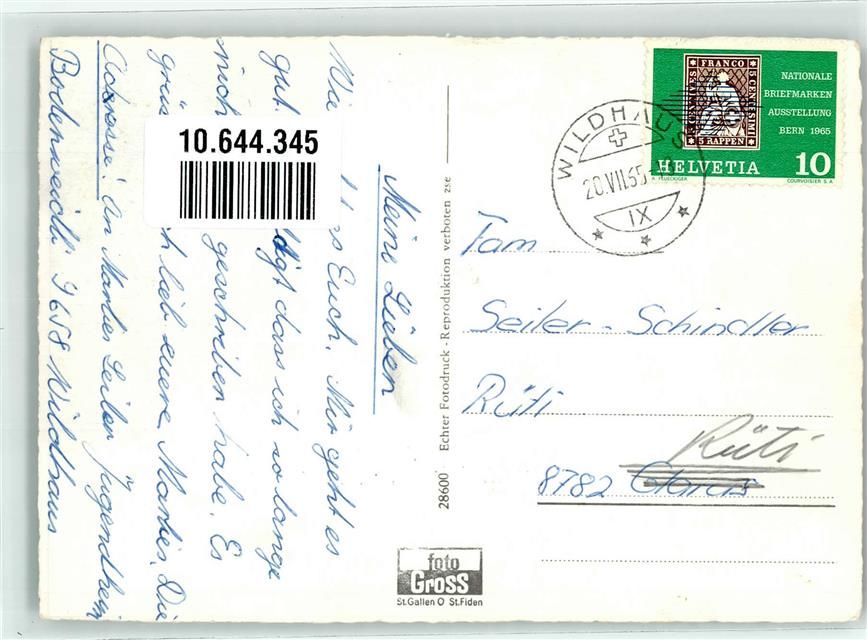 Meine Lieben
Wie Euch. Mir geht es
gut. dass ich so lange
nich geschrieben habe. Es
grüs lieb euere Marlies. Die
Adresse: An Marlies Seiler Jugendheim
Bodenweidli 9658 Wildhaus
10.644.345
28600 Echter Fotodruck - Reproduktion verboten zse
foto
Gross
St.Gallen O St.Fiden
WILDHAUS
20.VII.65
IX
FRANCO
5 CENTESIMI
5 RAPPEN
NATIONALE
BRIEFMARKEN
AUSSTELLUNG
BERN 1965
HELVETIA 10
COURVOISIER S.A.
Fam
Seiler - Schindler
Rüti
Rüti
8782 Glarus